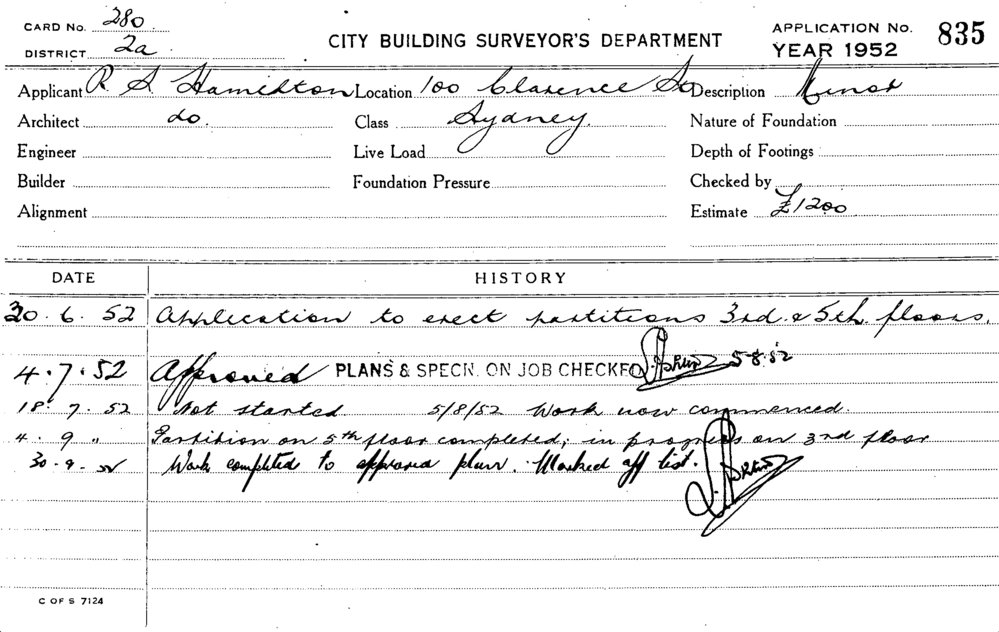 CARD No. 280
DISTRICT 2a
CITY BUILDING SURVEYOR'S DEPARTMENT
APPLICATION No. 835
YEAR 1952
Applicant R. S. Hamilton Location 100 Clarence St Description Minor
Architect do. Class Sydney. Nature of Foundation
Engineer Live Load Depth of Footings
Builder Foundation Pressure Checked by
Alignment Estimate £1200
DATE HISTORY
20.6.52 Application to erect partitions 3rd & 5th floors.
4.7.52 Approved PLANS & SPECN. ON JOB CHECKED 5.8.52
18.7.52 Not started 5/8/52 Work now commenced.
4.9 " Partition on 5th floor completed; in progress on 3rd floor
30.9.52 Work completed to approved plan. Marked off list.
C OF S 7124